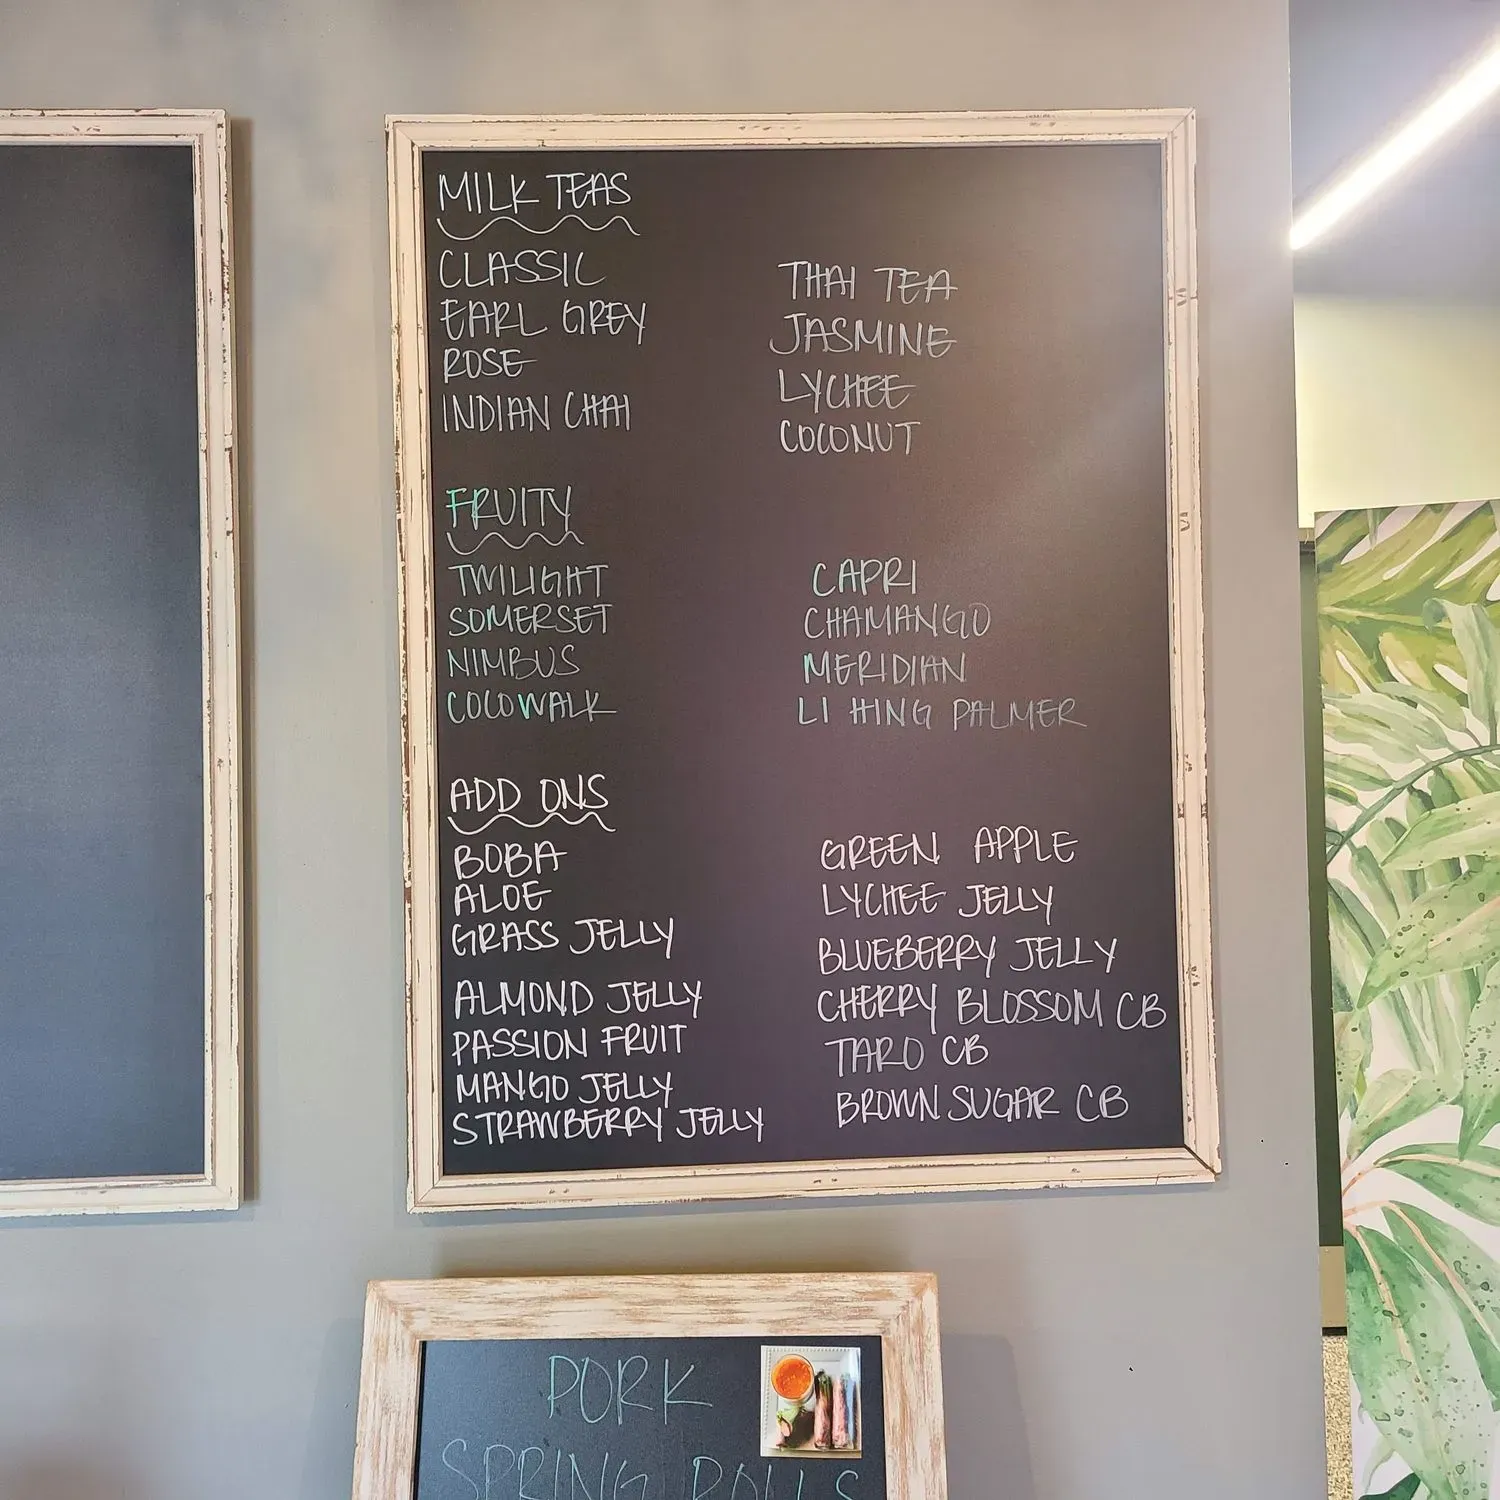 MILK TEAS
CLASSIC
EARL GREY
ROSE
INDIAN CHAI
THAI TEA
JASMINE
LYCHEE
COCONUT
FRUITY
TWILIGHT
SOMERSET
NIMBUS
COCOWALK
CAPRI
CHAMANGO
MERIDIAN
LI HING PALMER
ADD ONS
BOBA
ALOE
GRASS JELLY
ALMOND JELLY
PASSION FRUIT
MANGO JELLY
STRAWBERRY JELLY
GREEN APPLE
LYCHEE JELLY
BLUEBERRY JELLY
CHERRY BLOSSOM CB
TARO CB
BROWN SUGAR CB
PORK
SPRING ROLLS